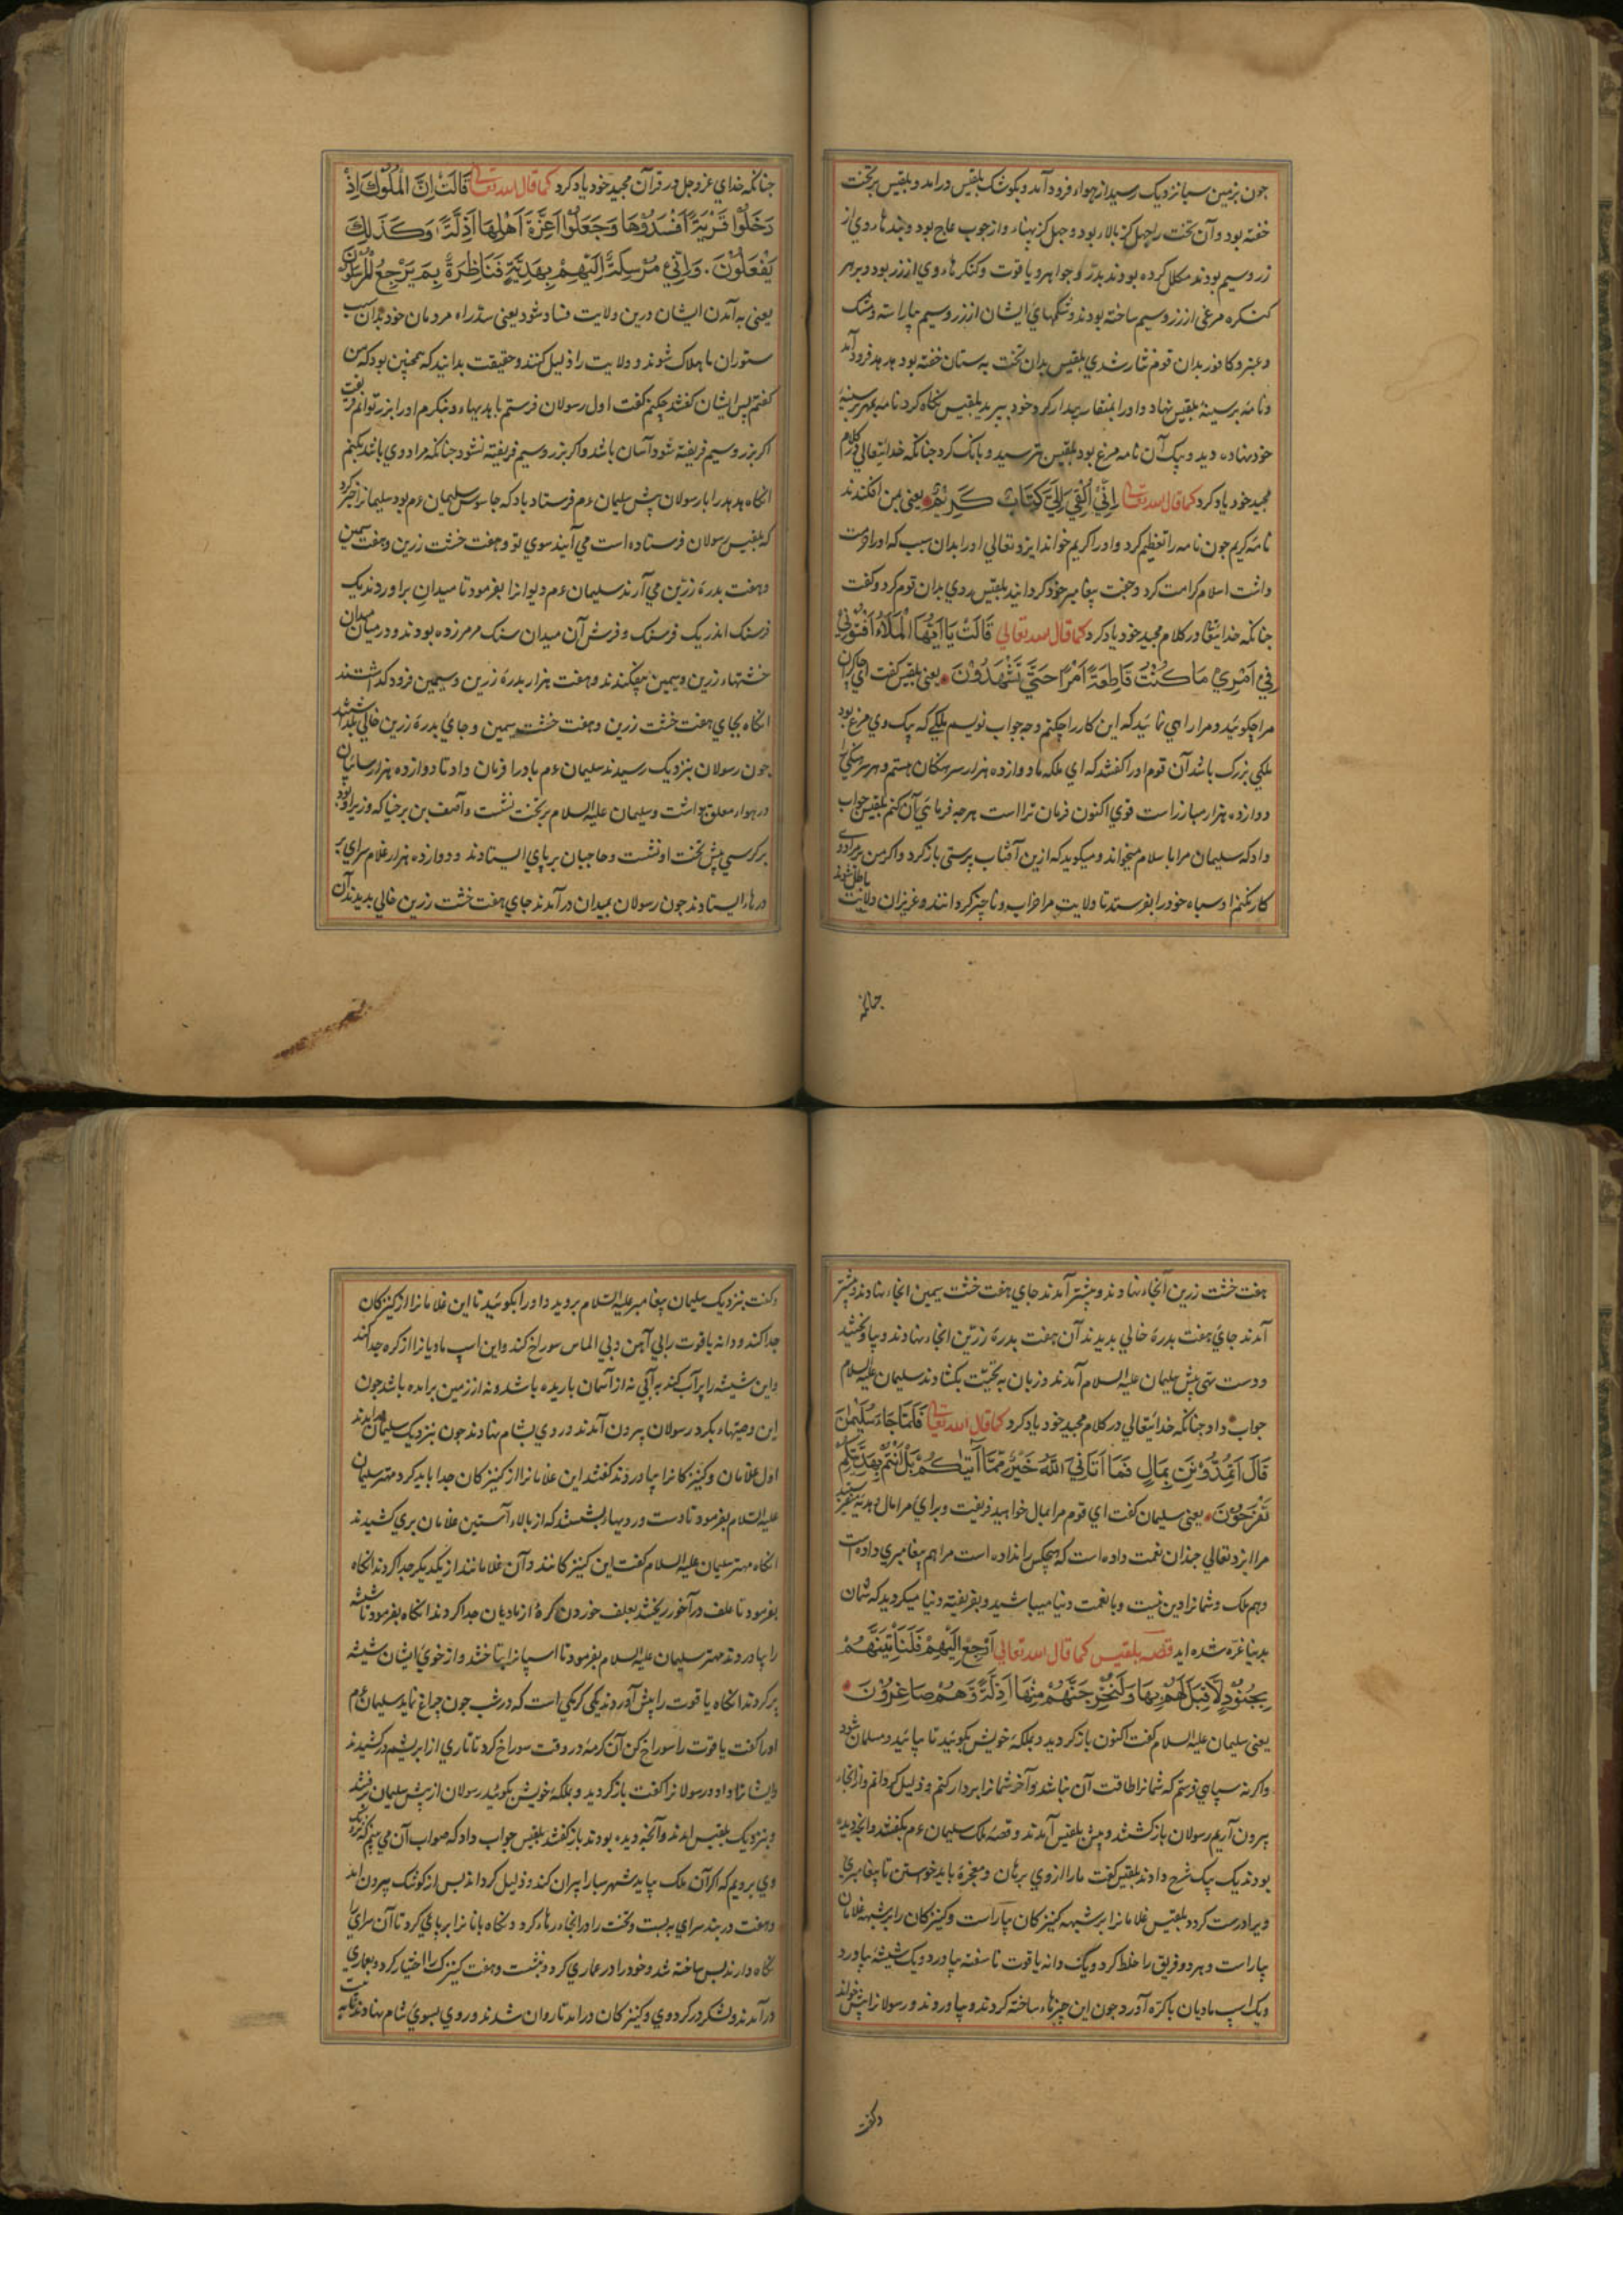 چون بزمین سبا نزدیک رسید از هواء فرود آمد و بکوشک بلقیس درامد و بلقیس بر تخت
خفته بود و آن تخت را چهل کز بالاء بود و چهل کز پهناء و از چوب عاج بود و بندهاء وی از
زر و سیم بودند مکلل کرده بودند بدرّ و جواهر و یاقوت و کنکرهاء وی از زر بود و بر هر
کنکره مرغی از زر و سیم ساخته بودند و شکمهای ایشان از زر و سیم بیاراسته و مشک
و عنبر و کافور بدان قوم نثار شدی بلقیس بدان تخت به ستان خفته بود هدهد فرود آمد
و نامه بر سینهٔ بلقیس نهاد و اورا بمنقار بیدار کرد و خود بپرید بلقیس نکاه کرد نامه بمهر بر سینهٔ
خود نهاده دید و پیک آن نامه مرغ بود بلقیس بترسید و بانک کرد جنانکه خدایتعالی در کلام
مجید خود یاد کرد کما قال الله تعالی اِنِّیْ اُلْقِیَ اِلَیَّ کِتَابٌ کَرِیْمٌ یعنی بمن افکندند
نامهٔ کریم چون نامه را تعظیم کرد و اورا کریم خواند ایزد تعالی اورا بدان سبب که اورا حرمت
داشت اسلام کرامت کرد و جفت پیغامبر خود کردانید بلقیس روی بدان قوم کرد و کفت
جنانکه خدایتعالی در کلام مجید خود یاد کرد کما قال الله تعالی قَالَتْ یَا اَیُّهَا الْمَلَاءُ اَفْتُوْنِیْ
فِیْ اَمْرِیْ مَا کُنْتُ قَاطِعَةً اَمْرًا حَتَّی تَشْهَدُوْنَ یعنی بلقیس کفت ای
مرا چکوئید و مرا راهی نمائید که این کار را چکنم و چه جواب نویسم ملکی که پیک وی مرغ بود
ملکی بزرک باشد آن قوم اورا کفتند که ای ملکه ما دوازده هزار سرهنکان هستیم و هر سرهنکی را
دوازده هزار مبارز است قوی اکنون فرمان تراست هرجه فرمائی آن کنم بلقیس جواب
داد که سلیمان مرا با سلام میخواند و میکوید که ازین آفتاب پرستی باز کرد و اکر من بر مراد وی
کار نکنم او سپاه خود را بفرستد تا ولایت مرا خراب و ناچیز کردانند و عزیزان ولایت
باطل شوند
جنانکه
جنانکه خدای عز و جل در قرآن مجید خود یاد کرد کما قال الله تعالی قَالَتْ اِنَّ الْمُلُوْکَ اِذَا
دَخَلُوْا قَرْیَةً اَفْسَدُوْهَا وَجَعَلُوْا اَعِزَّةَ اَهْلِهَا اَذِلَّةً وَکَذٰلِکَ
یَفْعَلُوْنَ. وَاِنِّیْ مُرْسِلَةٌ اِلَیْهِمْ بِهَدِیَّةٍ فَنَاظِرَةٌ بِمَ یَرْجِعُ الْمُرْسَلُوْنَ
یعنی به آمدن ایشان درین ولایت فساد شود یعنی سدّ راه مردمان خود بدان سبب
ستوران ما هلاک شوند و ولایت را ذلیل کنند و حقیقت بدانید که همچنین بود که من
کفتم پس ایشان کفتند چکنیم کفت اول رسولان فرستم با هدیهاء و بنکرم اورا بزر توانم فریفت
اکر بزر و سیم فریفته شود آسان باشد و اکر بزر و سیم فریفته نشود جنانکه مراد وی باشد بکنم
انکاه هدهد را با رسولان پیش سلیمان ءم فرستاد باد که جاسوس سلیمان ءم بود سلیمانرا خبر کرد
که بلقیس رسولان فرستاده است می آیند سوی تو و هفت خشت زرین و هفت سیمین
و هفت بدرهٔ زرّین می آرند سلیمان ءم دیوانرا بفرمود تا میدان براوردند یک
فرسنک اندر یک فرسنک و فرش آن میدان سنک مرمر زده بودند و در میان میدان
خشتهاء زرین و سیمین بیفکندند و هفت هزار بدرهٔ زرین و سیمین فرود کذاشتند
انکاه بجای هفت خشت زرین و هفت خشت سیمین و جای بدرهٔ زرین خالی بکذاشتند
چون رسولان بنزدیک رسیدند سلیمان ءم باد را فرمان داد تا دوازده هزار سائبان
در هواء معلق بداشت و سلیمان علیه السلام بر تخت نشست و آصف بن برخیا که وزیر او بود
بر کرسی پیش تخت او نشست و حاجبان بر پای ایستادند و دوازده هزار غلام سرای بر
درهاء ایستادند چون رسولان بمیدان درآمدند جای هفت خشت زرین خالی بدیدند آن
هفت خشت زرین آنجاء نهادند و پیشتر آمدند جای هفت خشت سیمین انجاء نهادند و پیشتر
آمدند جای هفت بدرهٔ خالی بدیدند آن هفت بدرهٔ زرّین انجاء نهادند و
و دست تهی پیش سلیمان علیه السلام آمدند و زبان به تحیّت بکشادند سلیمان علیه السلام
جواب داد جنانکه خدایتعالی در کلام مجید خود یاد کرد کما قال الله تعالی فَلَمَّا جَاءَ سُلَیْمٰنَ
قَالَ اَتُمِدُّوْنَنِ بِمَالٍ فَمَا اَتَانِیَ اللّٰهُ خَیْرٌ مِّمَّا آتٰیکُمْ بَلْ اَنْتُمْ بِهَدِیَّتِکُمْ
تَفْرَحُوْنَ یعنی سلیمان کفت ای قوم مرا بمال خواهید فریفت و برای مرا مال و هدیه میفرستید
مرا ایزد تعالی چندان نعمت داده است که هیچکس را نداده است مرا هم پیغامبری داده است
و هم ملک و شمانرا دین نیست و با نعمت دنیا میباشید و بفریفته دنیا میکردید که شمان
بدنیا غرّه شده اید قصه بلقیس کما قال الله تعالی اِرْجِعْ اِلَیْهِمْ فَلَنَاْتِیَنَّهُمْ
بِجُنُوْدٍ لَّا قِبَلَ لَهُمْ بِهَا وَلَنُخْرِجَنَّهُمْ مِنْهَا اَذِلَّةً وَّهُمْ صَاغِرُوْنَ
یعنی سلیمان علیه السلام کفت اکنون باز کردید و بملکهٔ خویش بکوئید تا بیائید و مسلمان شود
و اکرنه سپاهی فرستم که شمانرا طاقت آن نباشد و آخر شمانرا بردار کنم و ذلیل کردانم و از انجاء
بیرون آریم رسولان باز کشتند و پیش بلقیس آمدند و قصهٔ ملک سلیمان ءم بکفتند و انچه دیده
بودند یک بیک شرح دادند بلقیس کفت مارا ازوی برهان و معجزهٔ باید خواستن تا پیغامبریٔ
ویرا درست کردد بلقیس غلامانرا بر شبههٔ کنیزکان بیاراست و کنیزکان را بر شبههٔ غلامان
بیاراست و هر دو فریق را خلط کرد و یک دانه یاقوت ناسفته بیاورد و یک شیشهٔ بیاورد
و یک اسپ مادیان با کرّه آورد چون این چیزهاء ساخته کردند و بیاوردند و رسولانرا پیش خواند
و کفت
و کفت بنزدیک سلیمان پیغامبر علیه السّلام بروید و اورا بکوئید تا این غلامانرا از کنیزکان
جدا کند و دانه یاقوت را بی آهن و بی الماس سوراخ کند و این اسپ مادیانرا از کره جدا کند
و این شیشه را پر آب کند به آبی نه از آسمان باریده باشد و نه از زمین برامده باشد چون
این وصیتهاء بکرد رسولان بیرون آمدند و روی بشام نهادند چون بنزدیک سلیمان آمدند
اول غلامان و کنیزکانرا بیاوردند کفتند این غلامانرا از کنیزکان جدا باید کرد مهتر سلیمان
علیه السّلام بفرمود تا دست و رویها بشستند که از بالاء آستین غلامان بری کشیدند
انکاه مهتر سلیمان علیه السلام کفت این کنیزکانند و آن غلامانند از یکدیکر جدا کردند انکاه
بفرمود تا علف در آخور ریختند بعلف خوردن کرهٔ از مادیان جدا کردند انکاه بفرمود تا شیشه
را بیاوردند مهتر سلیمان علیه السلام بفرمود تا اسپانرا بتاختند و از خوی ایشان شیشه
پر کردند انکاه یاقوت را پیش آوردند یکی کرمکی است که در شب چون چراغ نماید سلیمان ءم
اورا کفت یاقوت را سوراخ کن آن کرم در وقت سوراخ کرد تا تاری از ابریشم درکشیدند
و ایشانرا داد و رسولانرا کفت باز کردید و بملکهٔ خویش بکوئید رسولان از پیش سلیمان برفتند
و بنزدیک بلقیس امدند و آنچه دیده بودند باز کفتند بلقیس جواب داد که صواب آن می بینم که نزدیک
وی برویم که اکر آن ملک بیاید شهر سبا را ویران کند و ذلیل کرداند پس از کوشک بیرون امد
و هفت در بند سرای به بست و تخت را در انجاء رهاء کرد و نکاه بانانرا برپای کرد تا آن سرای را
نکاه دارند پس ساخته شد و خود را در عماری کرد و بنشست و هفت کنیزک را اختیار کرد و بعماری
درآمدند و لشکر در کرد وی و کنیزکان درامد تا روان شدند و روی بسوی شام نهادند